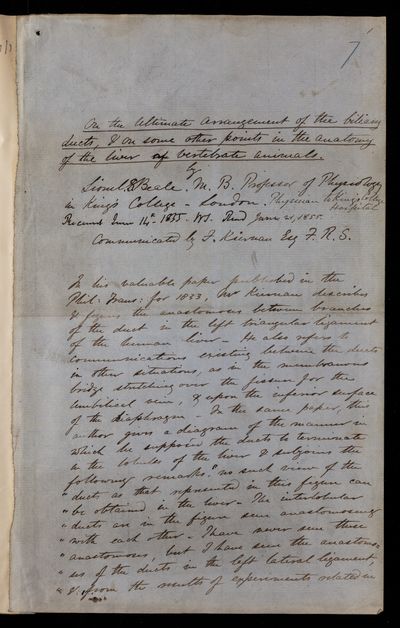 7
On the Ultimate arrangement of the biliary
ducts, & on some other points in the anatomy
of the liver of vertebrate animals.
by
Lionel S Beale. M. B. Professor of Physiology
in King's College - London. Physician to King's College
Hospital
Received June 14th 1855. Read June 21, 1855.
Communicated by F. Kiernan Esq F. R. S.
In his valuable paper published in the
Phil: Trans: for 1833, Mr Kiernan describes
& figures the anastomoses between branches
of the duct in the left triangular ligament
of the human liver - He also refers to
communications existing between the ducts
in other situations, as in the membranous
bridge stretching over the fissure for the
umbilical vein, & upon the inferior surface
of the diaphragm - In the same paper, this
author gives a diagram of the manner in
which he supposed the ducts to terminate
in the lobules of the liver & subjoins the
following remarks. "no such view of the
"ducts as that represented in this figure can
"be obtained in the liver - The interlobular
"ducts are in the figure seen anastomosing
"with each other - I have never seen these
"anastomoses, but I have seen the anastomo-
"ses of the ducts in the left lateral ligament,
"&. from the results of experiments related in